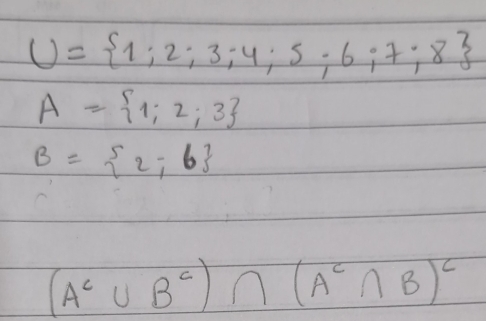 U = {1; 2; 3; 4; 5; 6; 7; 8}
A = {1; 2; 3}
B = {2; 6}
(Aᶜ ∪ Bᶜ) ∩ (Aᶜ ∩ B)ᶜ